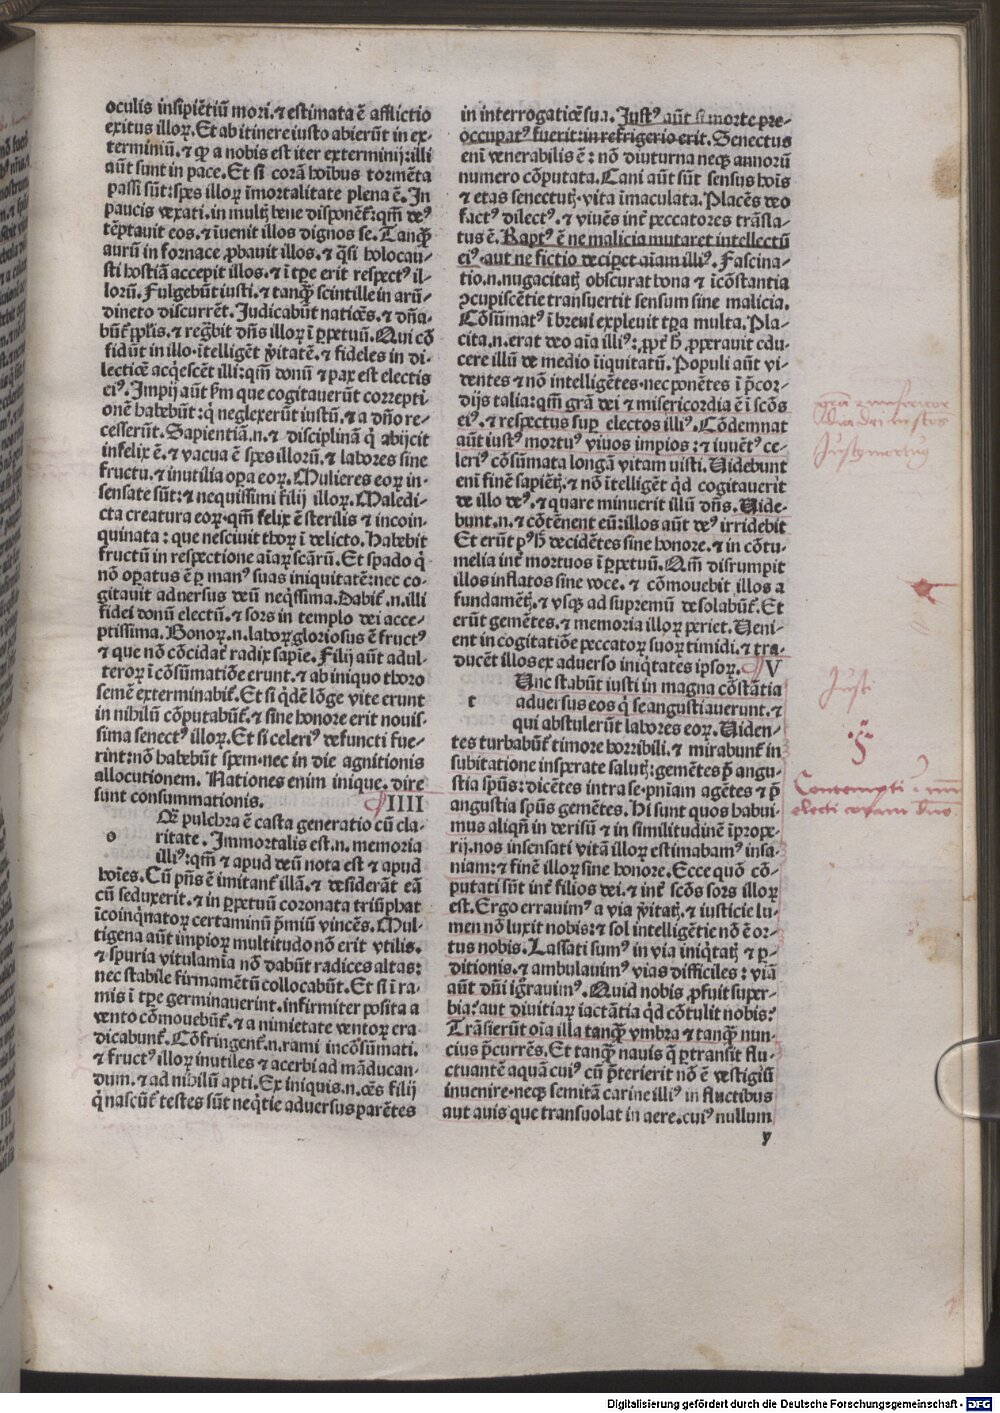 oculis insipiẽtiũ mori. ⁊ estimata ẽ afflictio
exitus illoꝝ. Et ab itinere iusto abierũt in ex-
terminiũ. ⁊ qꝛ a nobis est iter exterminij: illi
aũt sunt in pace. Et si corã hoĩbus tormẽta
passi sũt: spes illoꝝ ĩmortalitate plena ẽ. In
paucis vexati. in multꝭ bene disponẽt̃: qm̃ deꝰ
tẽptauit eos. ⁊ ĩuenit illos dignos se. Tanqꝫ̃
aurũ in fornace ꝓbauit illos. ⁊ q̃si holocau-
sti hostiã accepit illos. ⁊ ĩ tꝑe erit respectꝰ il-
lorũ. Fulgebũt iusti. ⁊ tanqꝫ̃ scintille in arũ-
dineto discurrẽt. Judicabũt natiões. ⁊ dña-
bũt̃ ꝓplis. ⁊ regñbit dñs illoꝝ ĩ ꝑpetuũ. Qui cõ
fidũt in illo. ĩtelligẽt ṽitatẽ. ⁊ fideles in di-
lectiõe acq̃escẽt illi: qm̃ donũ ⁊ pax est electis
eiꝰ. Impij aũt ẽm que cogitauerũt correpti
onẽ habebũt: q̃ neglexerũt iustũ. ⁊ a dño re-
cesserũt. Sapientiã. n. ⁊ disciplinã q̃ abijcit
infelix ẽ. ⁊ vacua ẽ spes illorũ. ⁊ labores sine
fructu. ⁊ inutilia oꝑa eoꝝ. Mulieres eoꝝ in-
sensate sũt: ⁊ nequissimi filij illoꝝ. Maledi-
cta creatura eoꝝ. qm̃ felix ẽ sterilis ⁊ incoin-
quinata: que nesciuit thoꝝ ĩ delicto. Habebit
fructũ in respectione aĩaꝝ scãrũ. Et spado q̃
nõ oꝑatus ẽ ꝑ manꝰ suas iniquitatẽ: nec co-
gitauit aduersus deũ neq̃ssima. Dabit̃ .n. illi
fidei donũ electũ. ⁊ sors in templo dei acce-
ptissima. Bonoꝝ. n. laboꝝ gloriosus ẽ fructꝰ
⁊ que nõ cõcidat̃ radix sapĩe. Filij aũt adul-
teroꝝ ĩ cõsũmatiõe erunt. ⁊ ab iniquo thoro
semẽ exterminabit̃. Et si q̃dẽ lõge vite erunt
in nihilũ cõputabũt̃. ⁊ sine honore erit nouis-
sima senectꝰ illoꝝ. Et si celeriꝰ defuncti fue-
rint: nõ habebũt spem. nec in die agnitionis
allocutionem. Nationes enim inique. dire
sunt consummationis. IIII
o Qꝫ̃ pulchra ẽ casta generatio cũ cla-
ritate. Immortalis est. n. memoria
illiꝰ: qm̃ ⁊ apud deũ nota est ⁊ apud
hoĩes. Cũ pñs ẽ imitant̃ illã. ⁊ desiderãt eã
cũ seduxerit. ⁊ in ꝑpetuũ coronata triũphat
ĩcoinq̃natoꝝ certaminũ p̃miũ vincẽs. Mul-
tigena aũt impioꝝ multitudo nõ erit vtilis.
⁊ spuria vitulamĩa nõ dabũt radices altas:
nec stabile firmamẽtũ collocabũt. Et si ĩ ra-
mis ĩ tꝑe germinauerint. infirmiter posita a
vento cõmouebũt̃. ⁊ a nimietate ventoꝝ era
dicabunt̃. Cõfringent̃. n. rami incõsũmati.
⁊ fructꝰ illoꝝ inutiles ⁊ acerbi ad mãducan-
dum. ⁊ ad nihilũ apti. Ex iniquis. n. oẽs filij
q̃ nascũt̃ testes sũt neq̃tie aduersus parẽtes
in interrogatiõe sua. Justꝰ aũt si morte pre-
occupatꝰ fuerit: in refrigerio erit. Senectus
eni venerabilis ẽ: nõ diuturna neqꝫ annorũ
numero cõputata. Cani aũt sũt sensus hoĩs
⁊ etas senectutꝭ. vita ĩmaculata. Placẽs deo
factꝰ dilectꝰ. ⁊ viuẽs int̃ peccatores trãsla-
tus ẽ. Raptꝰ ẽ ne malicia mutaret intellectũ
eiꝰ. aut ne fictio deciꝑet aĩam illiꝰ. Fascina-
tio. n. nugacitatꝭ obscurat bona ⁊ ĩcõstantia
ꝯcupiscẽtie transuertit sensum sine malicia.
Cõsũmatꝰ ĩ breui expleuit tꝑa multa. Pla-
cita. n. erat deo aĩa illiꝰ: ꝓpt̃ h̃ ꝓperauit edu-
cere illũ de medio ĩiquitatũ. Populi aũt vi-
dentes ⁊ nõ intelligẽtes. nec ponẽtes ĩ p̃cor-
dijs talia: qm̃ grã dei ⁊ misericordia ẽ ĩ scõs
eiꝰ. ⁊ respectus suꝑ electos illiꝰ. Cõdemnat
aũt iustꝰ mortuꝰ viuos impios: ⁊ iuuẽtꝰ ce-
leriꝰ cõsũmata longã vitam iusti. Uidebunt
eni finẽ sapiẽtꝭ. ⁊ nõ ĩtelligẽt q̃d cogitauerit
de illo deꝰ. ⁊ quare minuerit illũ dñs. Uide-
bunt. n. ⁊ cõtẽnent eũ: illos aũt deꝰ irridebit
Et erũt pꝰ h̃ decidẽtes sine honore. ⁊ in cõtu-
melia int̃ mortuos ĩ ꝑpetuũ. Qm̃ disrumpit
illos inflatos sine voce. ⁊ cõmouebit illos a
fundamẽtꝭ. ⁊ vsqꝫ ad supremũ desolabũt̃. Et
erũt gemẽtes. ⁊ memoria illoꝝ periet. Ueni-
ent in cogitatiõe peccatoꝝ suoꝝ timidi. ⁊ tra-
ducẽt illos ex aduerso iniq̃tates ipsoꝝ. V
t Unc stabũt iusti in magna cõstãtia
aduersus eos q̃ se angustiauerunt. ⁊
qui abstulerũt labores eoꝝ. Uiden-
tes turbabũt̃ timore horribili. ⁊ mirabunt̃ in
subitatione insperate salutꝭ: gemẽtes p̃ angu-
stia spũs: dicẽtes intra se. pniam agẽtes ⁊ p̃
angustia spũs gemẽtes. Hi sunt quos habui-
mus aliqñ in derisũ ⁊ in similitudinẽ ĩprope-
rij. nos insensati vitã illoꝝ estimabamꝰ insa-
niam: ⁊ finẽ illoꝝ sine honore. Ecce quõ cõ-
putati sũt int̃ filios dei. ⁊ int̃ scõs sors illoꝝ
est. Ergo errauimꝰ a via ṽitatꝭ. ⁊ iusticie lu-
men nõ luxit nobis: ⁊ sol intelligẽtie nõ ẽ or-
tus nobis. Lassati sumꝰ in via iniq̃tatꝭ ⁊ ꝑ-
ditionis. ⁊ ambulauimꝰ vias difficiles: viã
aũt dñi ig̃rauimꝰ. Quid nobis ꝓfuit super-
bia? aut diuitiaꝝ iactãtia q̃d cõtulit nobis?
Trãsierũt oĩa illa tanqꝫ̃ vmbra ⁊ tanqꝫ̃ nun-
cius p̃currẽs. Et tanqꝫ̃ nauis q̃ ꝑtransit flu-
ctuantẽ aquã cuiꝰ cũ p̃terierit nõ ẽ vestigiũ
inuenire. neqꝫ semitã carine illiꝰ in fluctibus
aut auis que transuolat in aere. cuiꝰ nullum
y
Justꝰ mortuꝰ
Justi
Contempti
electi coram dño
Digitalisierung gefördert durch die Deutsche Forschungsgemeinschaft - DFG